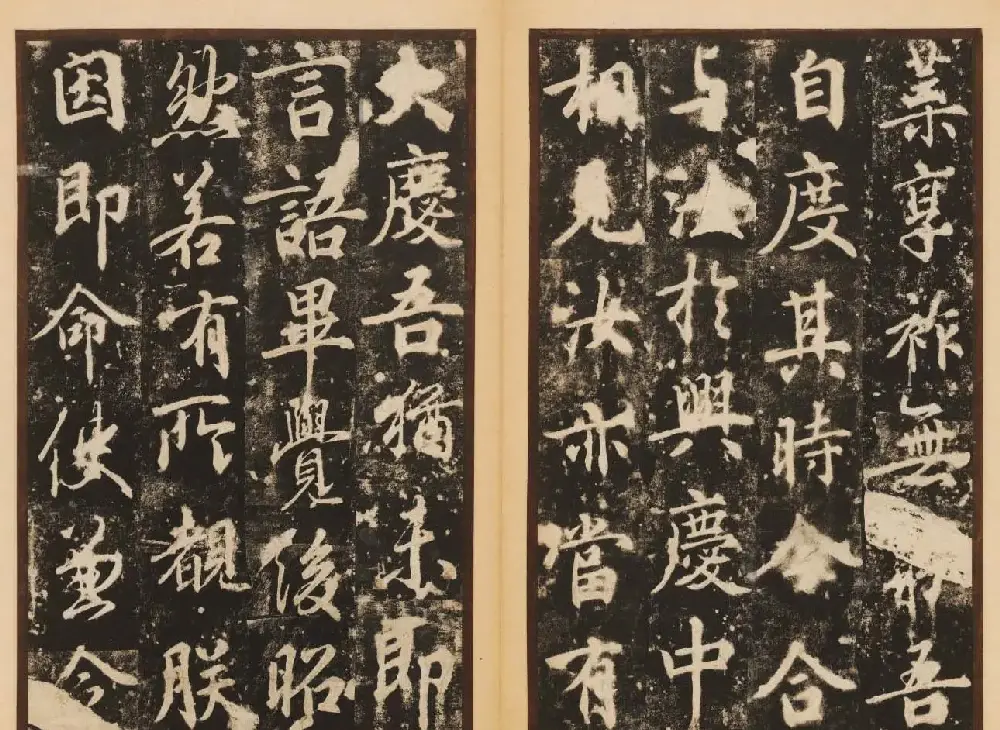 業享祚無吾
自度其時合合
与法於興慶中
相見汝亦當有
大慶吾猶未即
言語畢覺後昭
然若有所覩朕
因即命使兼令